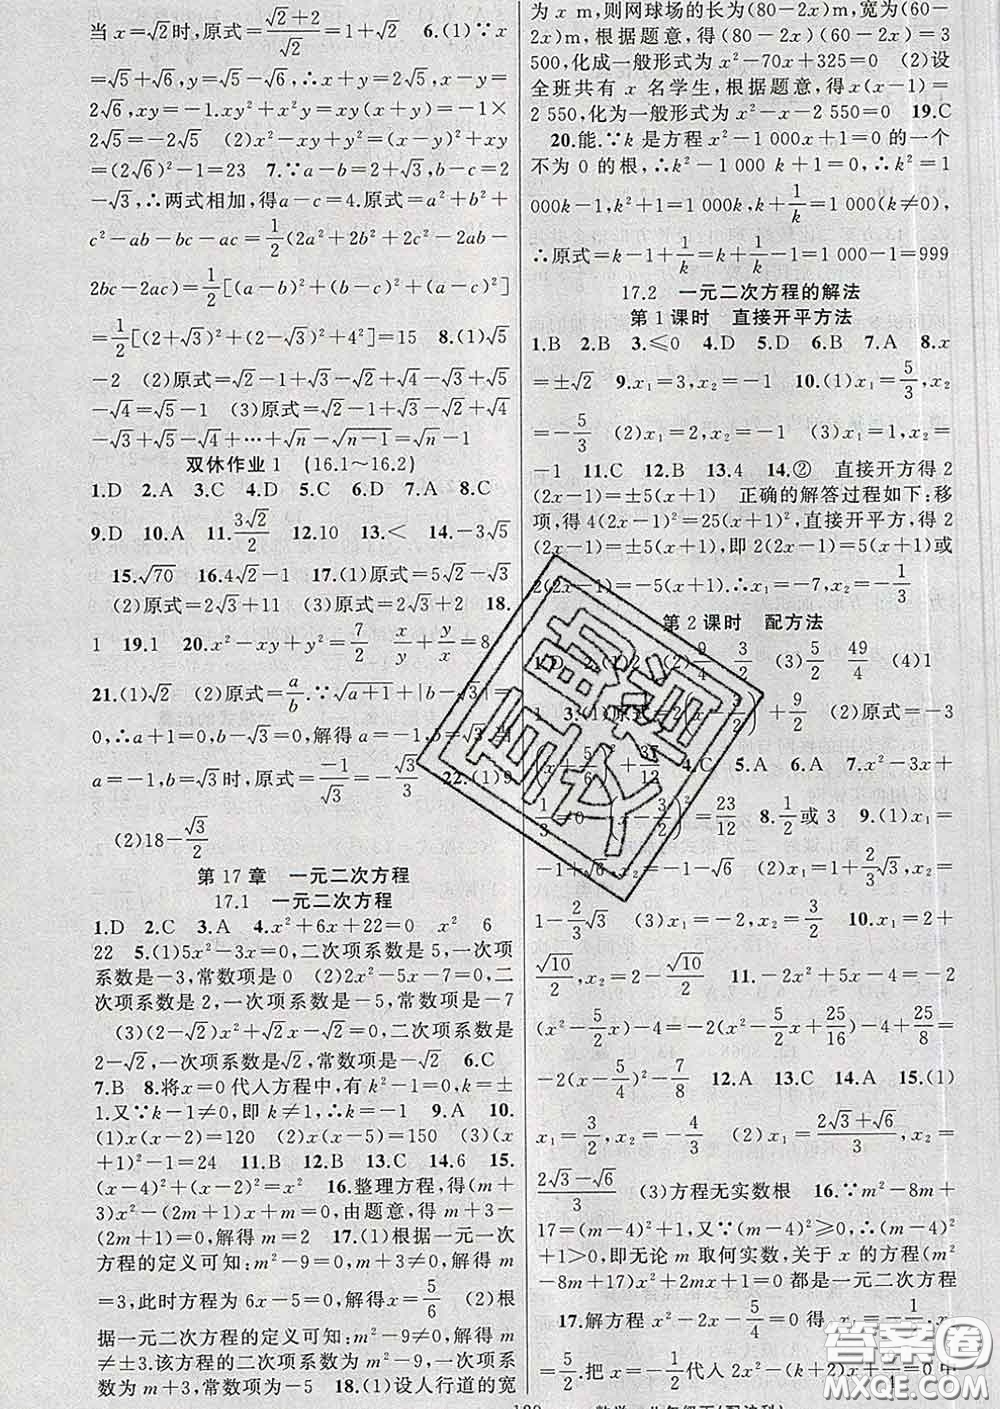 当x=√2时,原式=(√2+2)/√2=1+√2 6.(1)∵x=
√5+√6,y=√5-√6,∴x+y=2√5,x-y=
2√6,xy=-1.x²y+xy²=xy(x+y)=-1×
2√5=-2√5 (2)x²-xy+y²=(x-y)²+xy=
(2√6)²-1=23 7.∵a-b=2+√3,b-c=2
-√3,∴两式相加,得a-c=4.原式=a²+b²+
c²-ab-bc-ac=1/2(2a²+2b²+2c²-2ab-
2bc-2ac)=1/2[(a-b)²+(b-c)²+(a-c)²]
=1/2[(2+√3)²+(2-√3)²+4²]=15 8.(1)√5
-2 (2)原式=√2-1+√3-√2+√4-√3+√5
-√4=√5-1 (3)原式=√2-1+√3-√2+√4
-√3+√5-√4+…+√n-√(n-1)=√n-1
双休作业1 (16.1~16.2)
1.D 2.A 3.C 4.D 5.D 6.C 7.A 8.C
9.D 10.A 11.3√2/2 12.10 13.< 14.-3√5
15.√70 16.4√2-1 17.(1)原式=5√2-√3
(2)原式=2√3+11 (3)原式=√3+√2 18.
1 19.1 20.x²-xy+y²=7/2 x/y+y/x=8
21.(1)√2 (2)原式=a/b.∵√(a+1)+|b-√3|=
0,∴a+1=0,b-√3=0,解得a=-1,b=√3.当
a=-1,b=√3时,原式=-1/√3=-√3/3 22.(1)9
(2)18-√3/2
第17章 一元二次方程
17.1 一元二次方程
1.D 2.C 3.A 4.x²+6x+22=0 x² 6
22 5.(1)5x²-3x=0,二次项系数是5,一次项
系数是-3,常数项是0 (2)2x²-5x-7=0,二
次项系数是2,一次项系数是-5,常数项是-7
(3)(2-√2)x²+√2x-√2=0,二次项系数是
2-√2,一次项系数是√2,常数项是-√2 6.C
7.B 8.将x=0代入方程中,有k²-1=0,k=±
1.又∵k-1≠0,即k≠1,∴k=-1 9.A 10.
(1)x(x-2)=120 (2)x(x-5)=150 (3)(x
+1)²-1=24 11.B 12.B 13.C 14.6 15.
(x-4)²+(x-2)²=x² 16.整理方程,得(m+
3)x²-(2m+1)x+m=0,由题意,得m+3-
(2m+1)=0.解得m=2 17.(1)根据一元一次
方程的定义可知:m²-9=0,m+3≠0,解得m
=3,此时方程为6x-5=0,解得x=5/6 (2)根
据一元二次方程的定义可知:m²-9≠0,解得m
≠±3.该方程的二次项系数为m²-9,一次项系
数为m+3,常数项为-5 18.(1)设人行道的宽
为x m,则网球场的长为(80-2x)m,宽为(60-
2x)m,根据题意,得(80-2x)(60-2x)=3
500,化成一般形式为x²-70x+325=0 (2)设
全班共有x名学生,根据题意,得x(x-1)=
2 550,化为一般形式为x²-x-2 550=0 19.C
20.能.∵k是方程x²-1 000x+1=0的一个
不为0的根,∴k²-1 000 k+1=0,∴k²=1
000k-1,k²+1=1 000k,k+1/k=1 000(k≠0),
∴原式=k-1+1/k=k+1/k-1=1 000-1=999
17.2 一元二次方程的解法
第1课时 直接开平方法
1.B 2.B 3.≤0 4.D 5.D 6.B 7.A 8.x
=±√2 9.x₁=3,x₂=-1 10.(1)x₁=5/3,x₂
=-5/3 (2)x₁=2,x₂=-1 (3)x₁=-2,x₂=
-1 11.C 12.B 13.4 14.② 直接开方得2
(2x-1)=±5(x+1) 正确的解答过程如下:移
项,得4(2x-1)²=25(x+1)²,直接开平方,得2
(2x-1)=±5(x+1),即2(2x-1)=5(x+1)或
2(2x-1)=-5(x+1).∴x₁=-7,x₂=-1/3
第2课时 配方法
2.(1)2 (2)9/4 3/2 (3)5/2 49/4 (4)1
1 3.(1)原式=²+9/2 (2)原式=-3
(x+5/6)²+37/12 4.C 5.A 6.A 7.x²-3x+
1/3=0 (x-3/2)²=23/12 8.1/2或3 9.(1)x₁=
-1+√3,x₂=-1-√3 (2)x₁=1+2/3√3,x₂=
1-2/3√3 (3)x₁=-2,x₂=4 10.x₁=2+
√10/2,x₂=2-√10/2 11.-2x²+5x-4=-2
(x²-5/2x)-4=-2(x²-5/2x+25/16)-4+25/8=
-2(x-5/4)²-7/8 12.A 13.C 14.A 15.(1)
x₁=3/2,x₂=-4/3 (2)x₁=(2√3+√6)/3,x₂=
(2√3-√6)/3 (3)方程无实数根 16.∵m²-8m+
17=(m-4)²+1,又∵(m-4)²≥0,∴(m-4)²
+1>0,即无论m取何实数,关于x的方程(m²
-8m+17)x²+2mx+1=0都是一元二次方程
17.解方程x²-2x-5/4=0得x₁=-1/2,x₂
=5/2.把x=-1/2代入2x²-(k+2)x+1/4=0中
答案圈
MXQE.COM